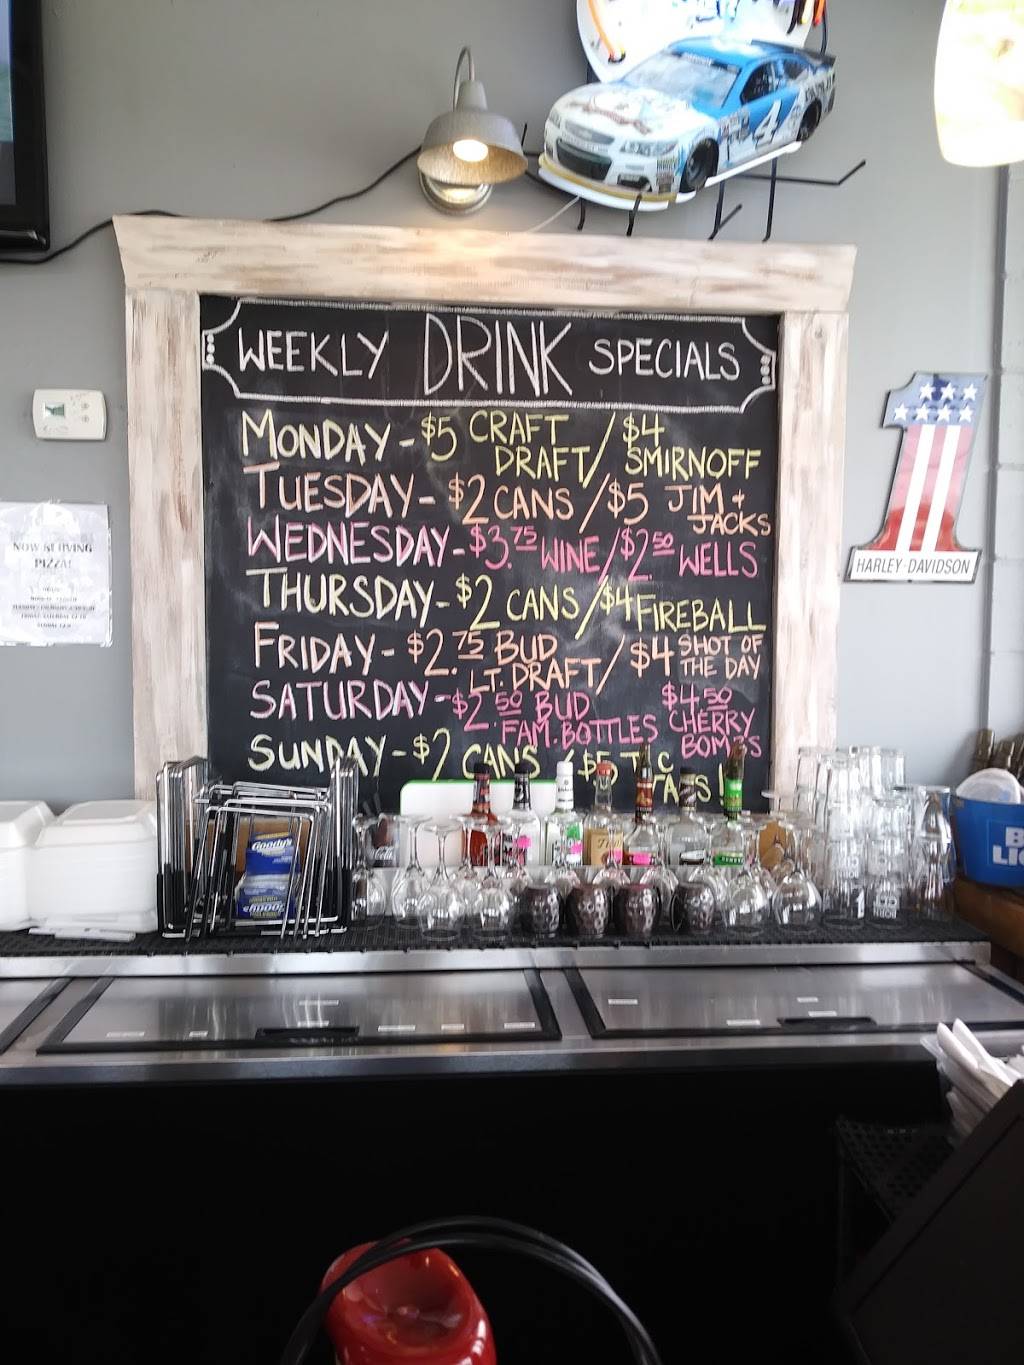 WEEKLY DRINK SPECIALS
MONDAY - $5 CRAFT DRAFT / $4 SMIRNOFF
TUESDAY - $2 CANS / $5 JIM + JACKS
WEDNESDAY - $3.75 WINE / $2.50 WELLS
THURSDAY - $2 CANS / $4 FIREBALL
FRIDAY - $2.75 BUD LT. DRAFT / $4 SHOT OF THE DAY
SATURDAY - $2.50 BUD FAM. BOTTLES $4.50 CHERRY BOMBS
SUNDAY - $2 CANS $5
4
HARLEY-DAVIDSON
NOW SERVING
PIZZA!
Goody's